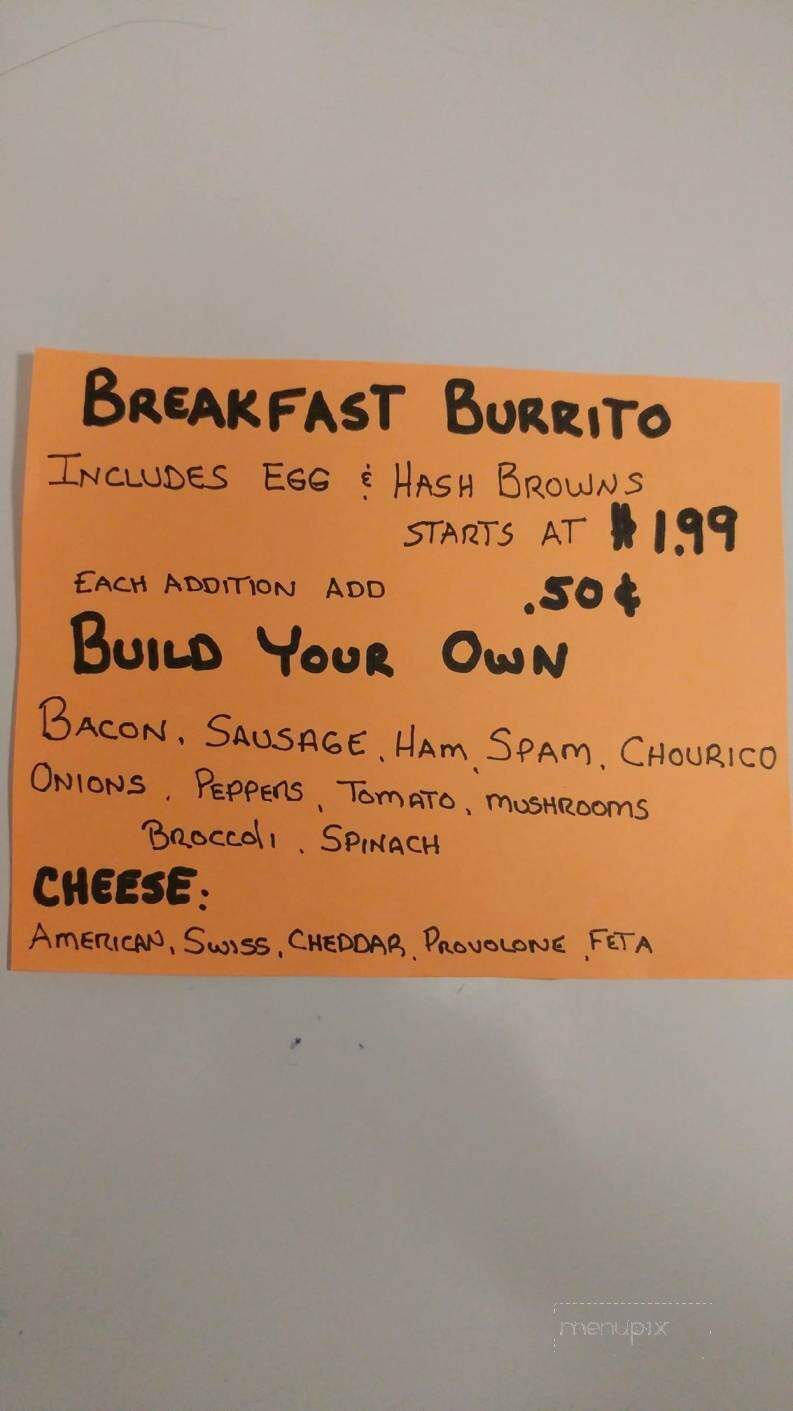 BREAKFAST BURRITO
INCLUDES EGG & HASH BROWNS
STARTS AT $1.99
EACH ADDITION ADD .50¢
BUILD YOUR OWN
BACON, SAUSAGE, HAM, SPAM, CHOURICO
ONIONS, PEPPERS, TOMATO, MUSHROOMS
BROCCOLI, SPINACH
CHEESE:
AMERICAN, SWISS, CHEDDAR, PROVOLONE, FETA
menupix